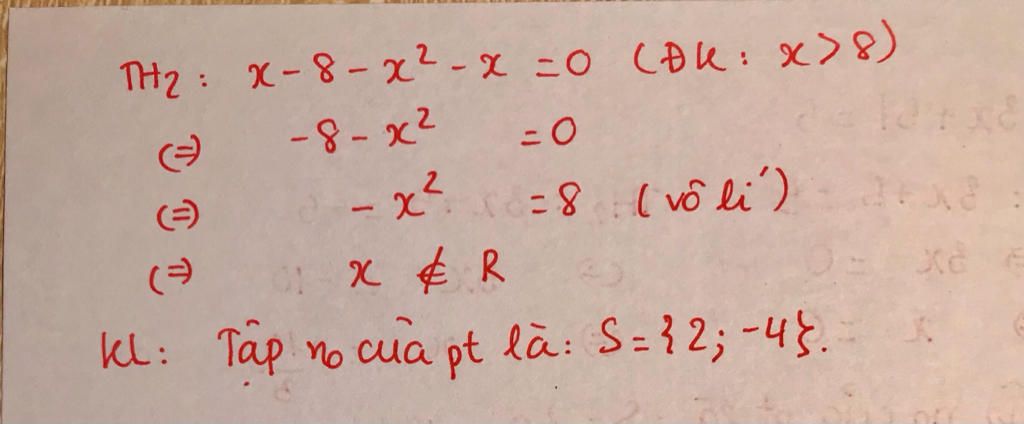 TH2: x - 8 - x² - x = 0 (ĐK: x > 8)
(=) -8 - x² = 0
(=) - x² = 8 (vô lí)
(=) x ∉ R
KL: Tập no của pt là: S = {2; -4}.